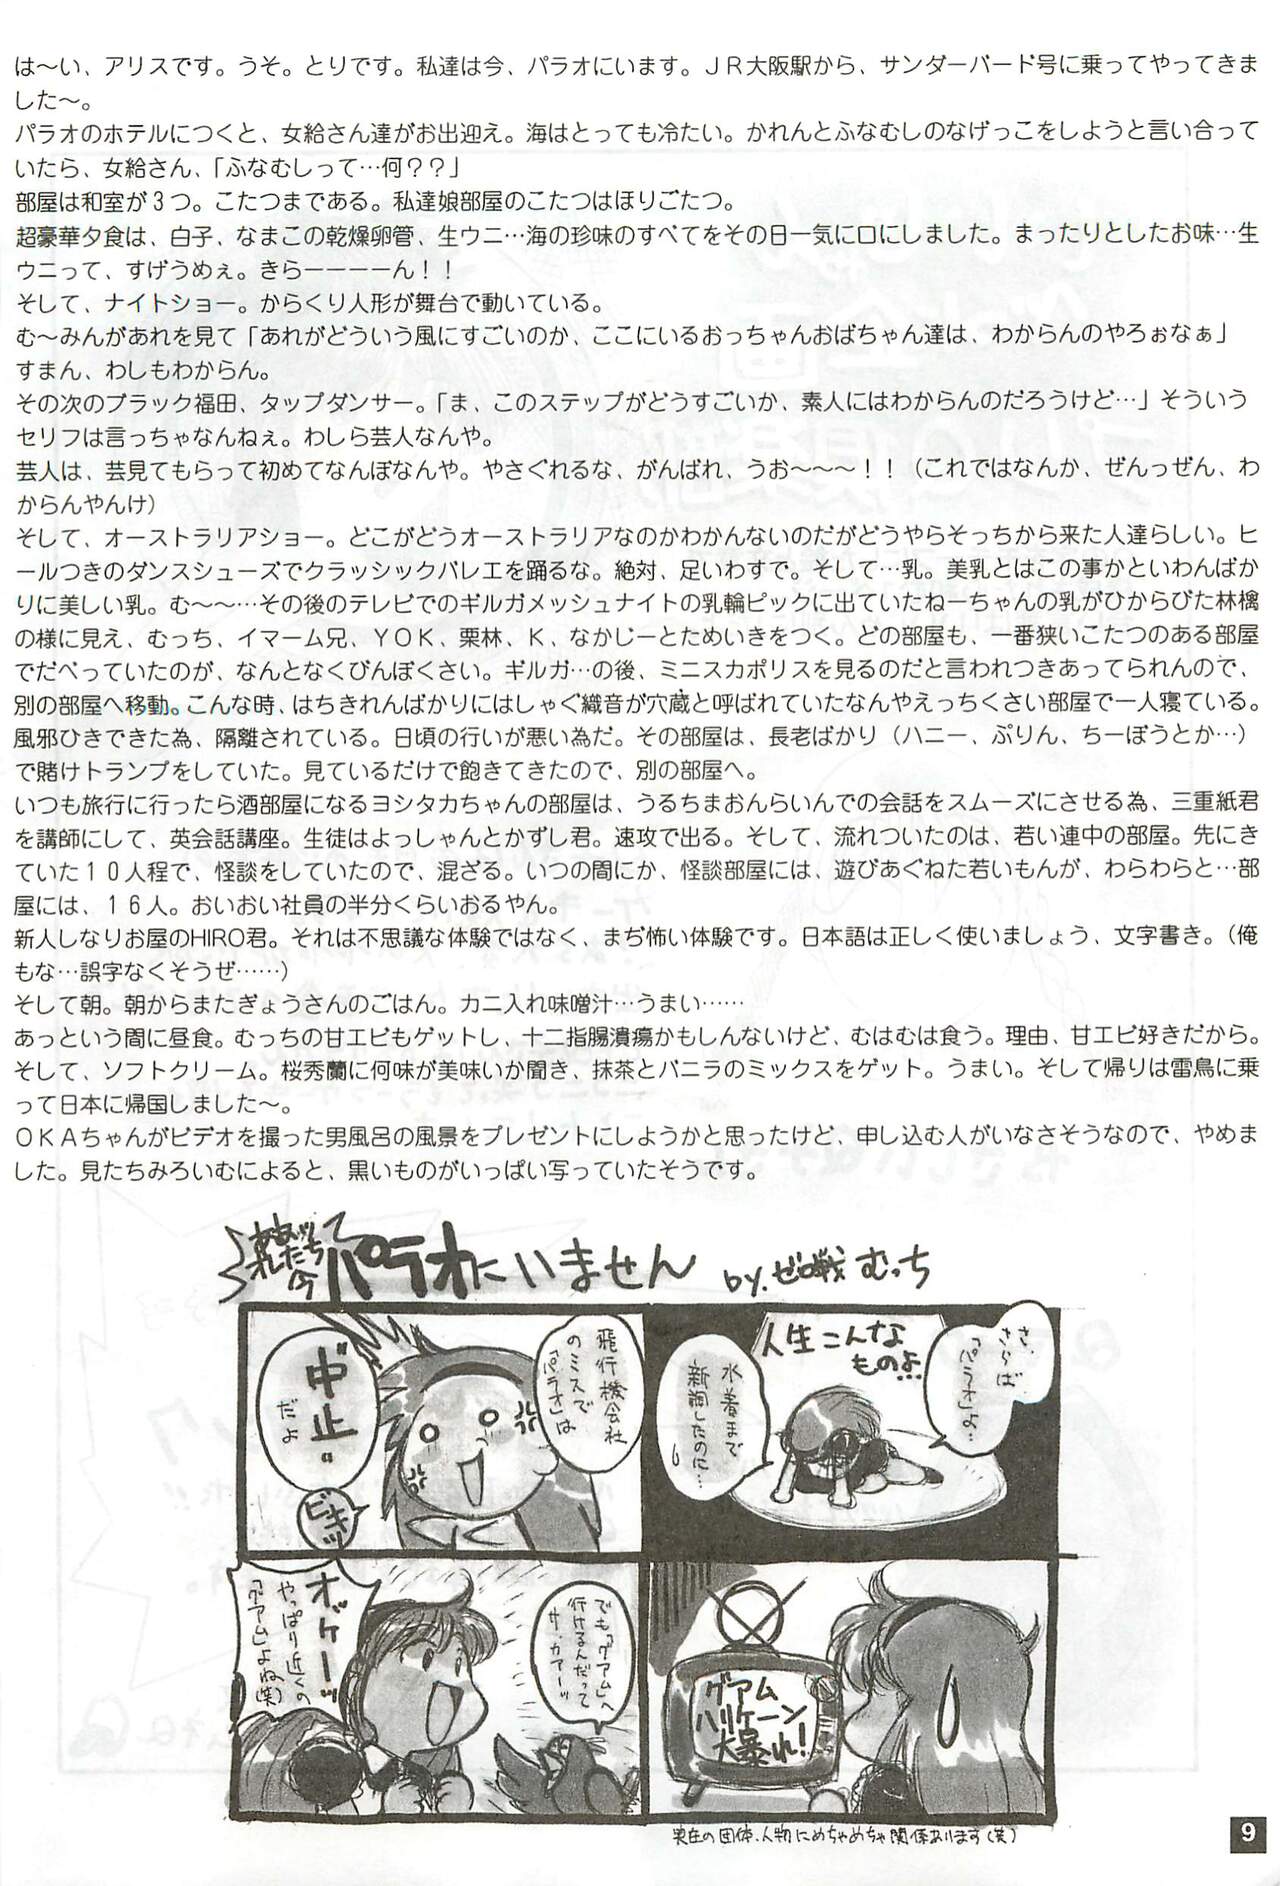 は～い、アリスです。うそ。とりです。私達は今、パラオにいます。ＪＲ大阪駅から、サンダーバード号に乗ってやってきま
した～。
パラオのホテルにつくと、女給さん達がお出迎え。海はとっても冷たい。かれんとふなむしのなげっこをしようと言い合って
いたら、女給さん、「ふなむしって…何？？」
部屋は和室が３つ。こたつまである。私達娘部屋のこたつはほりごたつ。
超豪華夕食は、白子、なまこの乾燥卵管、生ウニ…海の珍味のすべてをその日一気に口にしました。まったりとしたお味…生
ウニって、すげうめぇ。きらーーーーん！！
そして、ナイトショー。からくり人形が舞台で動いている。
む～みんがあれを見て「あれがどういう風にすごいのか、ここにいるおっちゃんおばちゃん達は、わからんのやろぉなぁ」
すまん、わしもわからん。
その次のブラック福田、タップダンサー。「ま、このステップがどうすごいか、素人にはわからんのだろうけど…」そういう
セリフは言っちゃなんねぇ。わしら芸人なんや。
芸人は、芸見てもらって初めてなんぼなんや。やさぐれるな、がんばれ、うお～～～！！（これではなんか、ぜんっぜん、わ
からんやんけ）
そして、オーストラリアショー。どこがどうオーストラリアなのかわかんないのだがどうやらそっちから来た人達らしい。ヒ
ールつきのダンスシューズでクラッシックバレエを踊るな。絶対、足いわすで。そして…乳。美乳とはこの事かといわんばか
りに美しい乳。む～～…その後のテレビでのギルガメッシュナイトの乳輪ピックに出ていたねーちゃんの乳がひからびた林檎
の様に見え、むっち、イマーム兄、ＹＯＫ、栗林、Ｋ、なかじーとためいきをつく。どの部屋も、一番狭いこたつのある部屋
でだべっていたのが、なんとなくびんぼくさい。ギルガ…の後、ミニスカポリスを見るのだと言われつきあってられんので、
別の部屋へ移動。こんな時、はちきれんばかりにはしゃぐ織音が穴蔵と呼ばれていたなんやえっちくさい部屋で一人寝ている。
風邪ひきできた為、隔離されている。日頃の行いが悪い為だ。その部屋は、長老ばかり（ハニー、ぷりん、ちーぼうとか…）
で賭けトランプをしていた。見ているだけで飽きてきたので、別の部屋へ。
いつも旅行に行ったら酒部屋になるヨシタカちゃんの部屋は、うるちまおんらいんでの会話をスムーズにさせる為、三重紙君
を講師にして、英会話講座。生徒はよっしゃんとかずし君。速攻で出る。そして、流れついたのは、若い連中の部屋。先にき
ていた１０人程で、怪談をしていたので、混ざる。いつの間にか、怪談部屋には、遊びあぐねた若いもんが、わらわらと…部
屋には、１６人。おいおい社員の半分くらいおるやん。
新人しなりお屋のHIRO君。それは不思議な体験ではなく、まぢ怖い体験です。日本語は正しく使いましょう、文字書き。（俺
もな…誤字なくそうぜ……）
そして朝。朝からまたぎょうさんのごはん。カニ入れ味噌汁…うまい……
あっという間に昼食。むっちの甘エビもゲットし、十二指腸潰瘍かもしんないけど、むはむは食う。理由、甘エビ好きだから。
そして、ソフトクリーム。桜秀蘭に何味が美味いか聞き、抹茶とバニラのミックスをゲット。うまい。そして帰りは雷鳥に乗
って日本に帰国しました～。
ＯＫＡちゃんがビデオを撮った男風呂の風景をプレゼントにしようかと思ったけど、申し込む人がいなさそうなので、やめま
した。見たちみろいむによると、黒いものがいっぱい写っていたそうです。
今
パラオにいません
by.ゼロ戦 むっち
飛行機会社
のミスで
「パラオ」は
中止。
だよ
ビキッ
さ、
さらば
「パラオ」よ…
人生こんな
ものよ…
水着まで
新調したのに…
でも「グアム」へ
行けるんだって
サ、カアーッ
オッケーッ
やっぱり近くの
「グアム」よね(笑)
グアム
ハリケーン
大暴れ!
実在の団体、人物にめちゃめちゃ関係あります(笑)
9